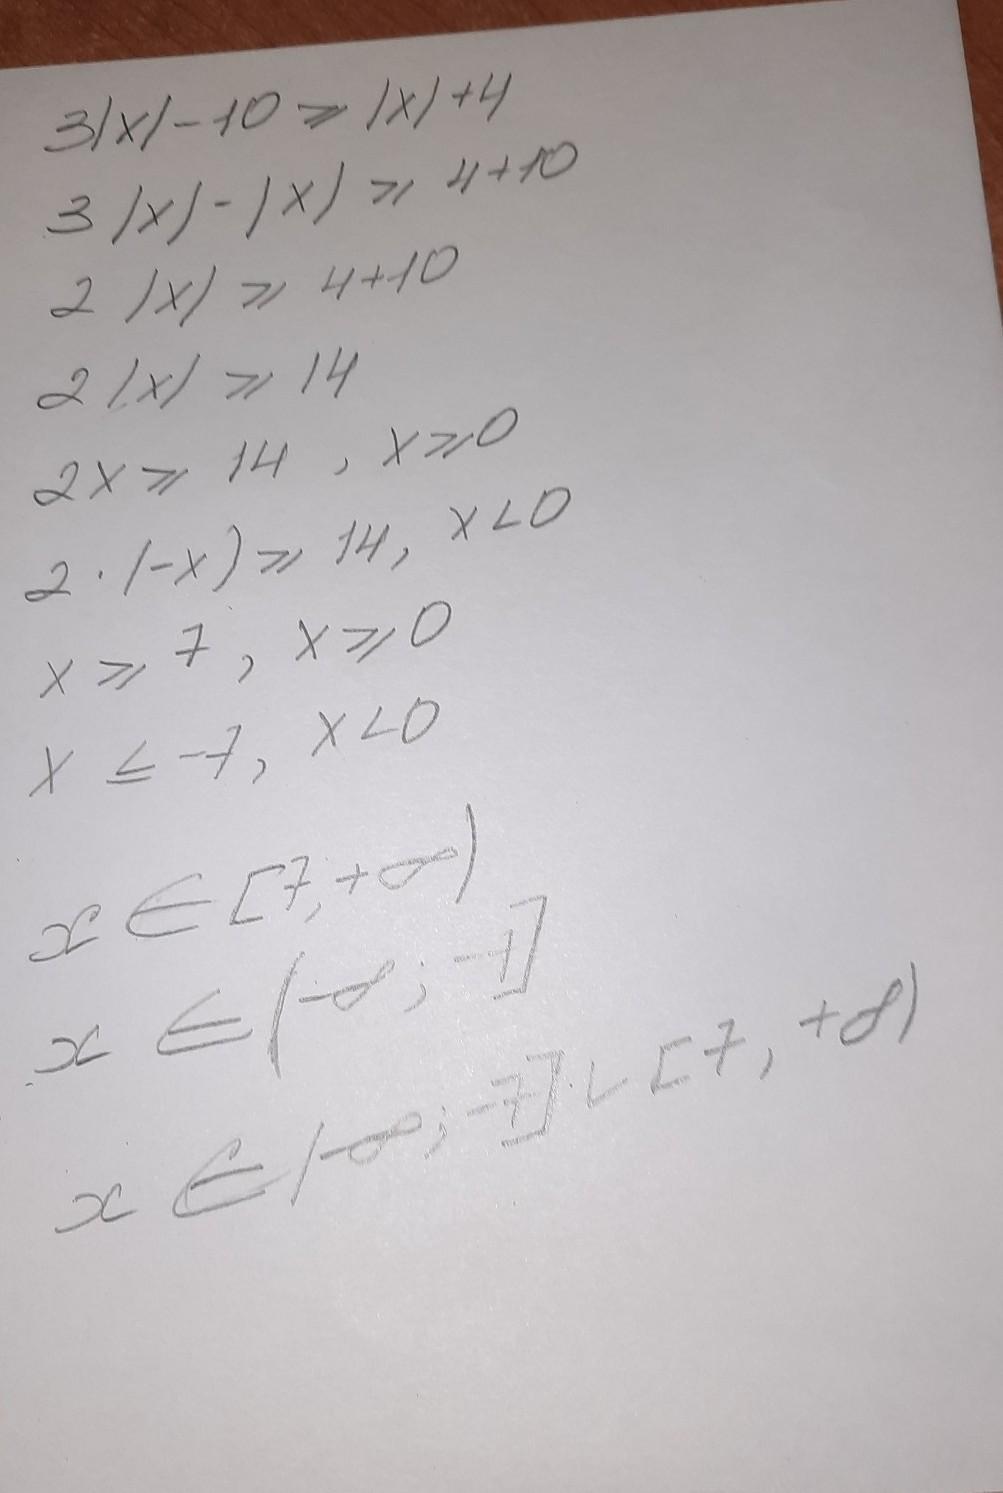 3|x|-10⩾|x|+4
3|x|-|x|⩾4+10
2|x|⩾4+10
2|x|⩾14
2x⩾14, x⩾0
2·(-x)⩾14, x<0
x⩾7, x⩾0
x≤-7, x<0
x∈[7,+∞)
x∈(-∞;-7]
x∈(-∞;-7]∪[7,+∞)